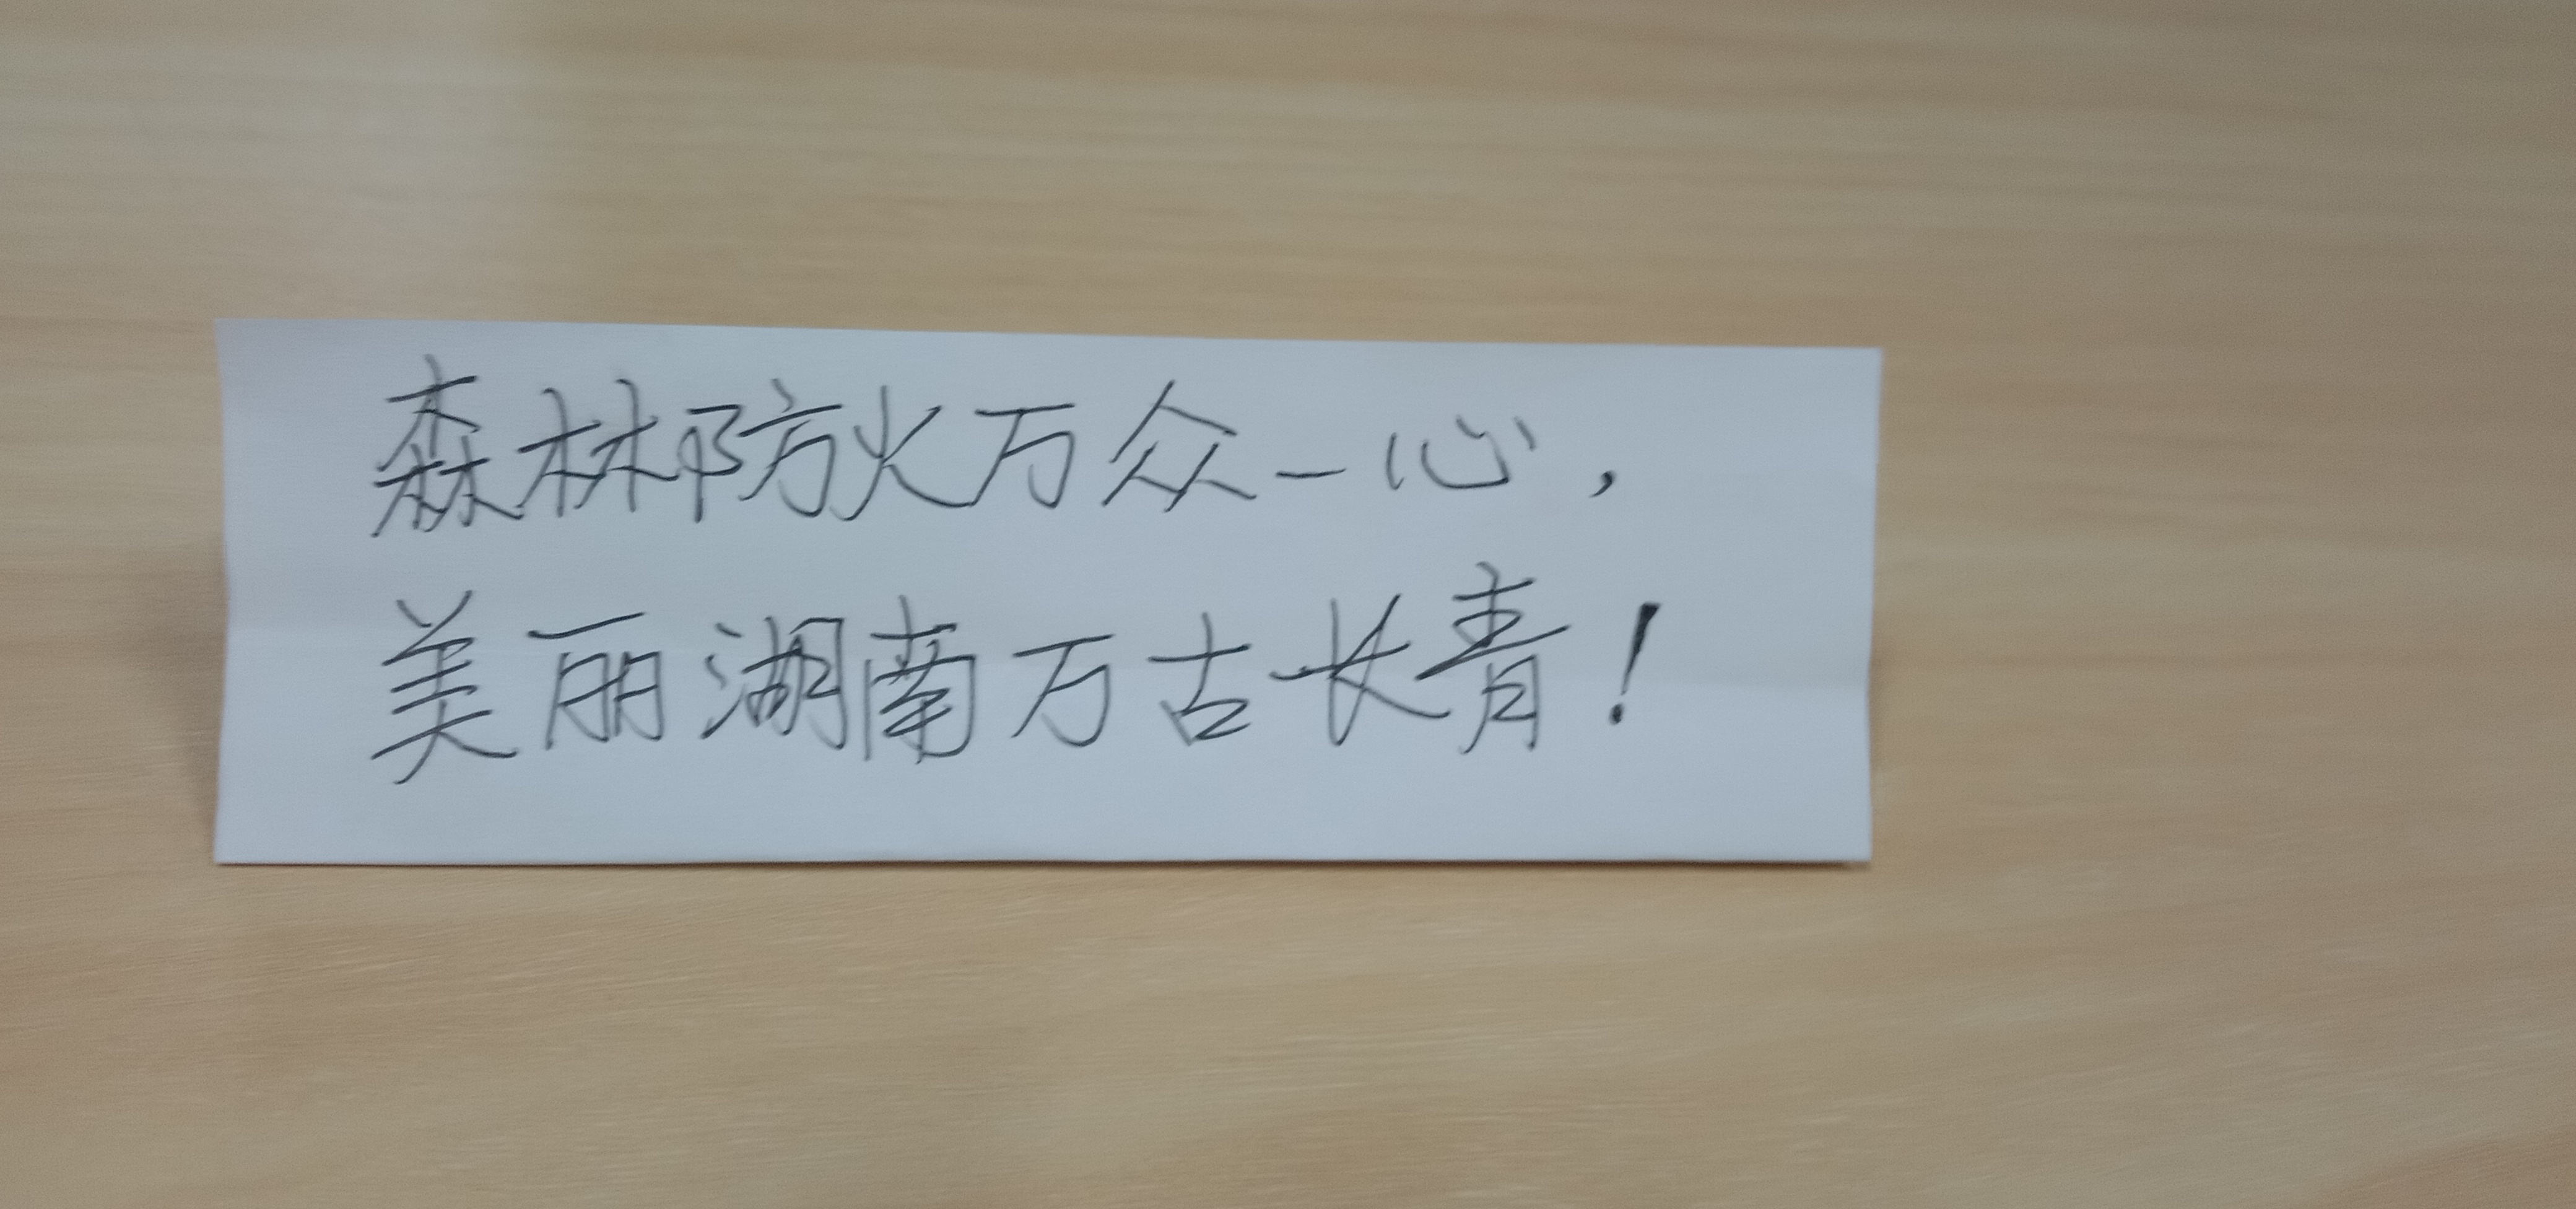 森林防火万众一心，
美丽湖南万古长青！